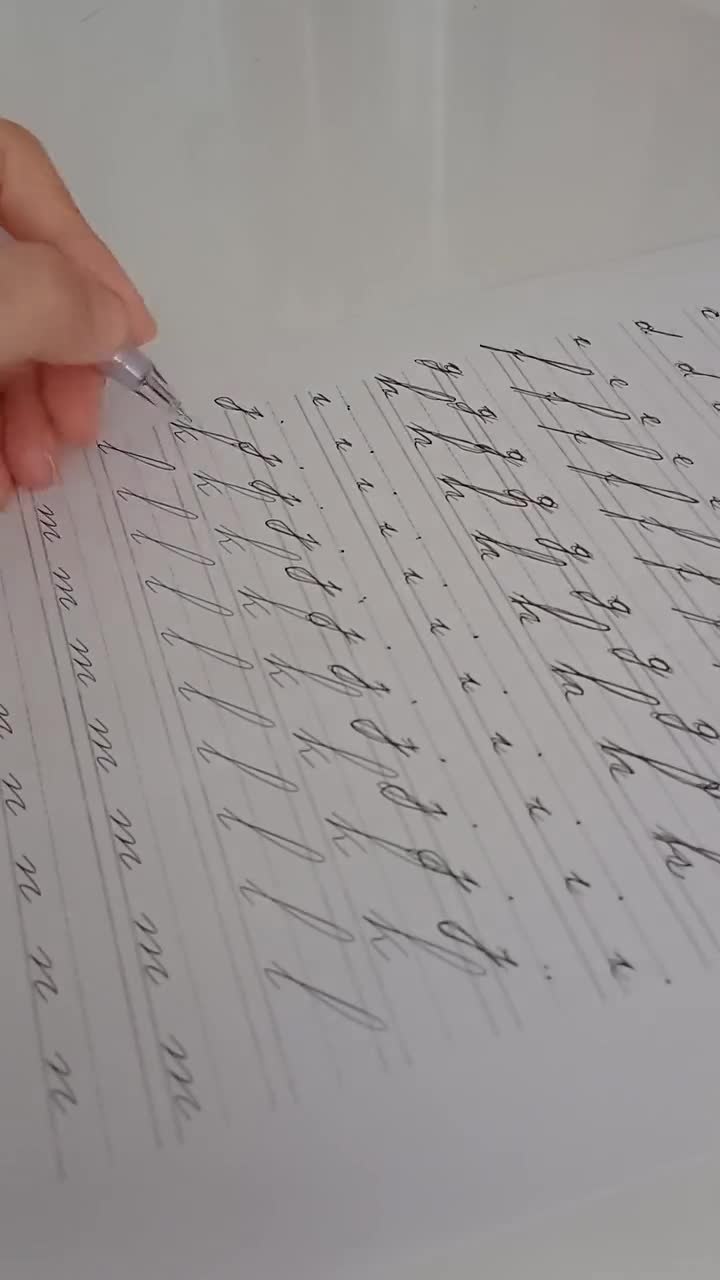 c
d d
e e e e e
f f f f f f
g g g g g g g g
h h h h h h h h
i i i i i i i i i i i
j j j j j j j j j j j
k k k k k k k k
l l l l l l l l l l
m m m m m m m
n n n n n